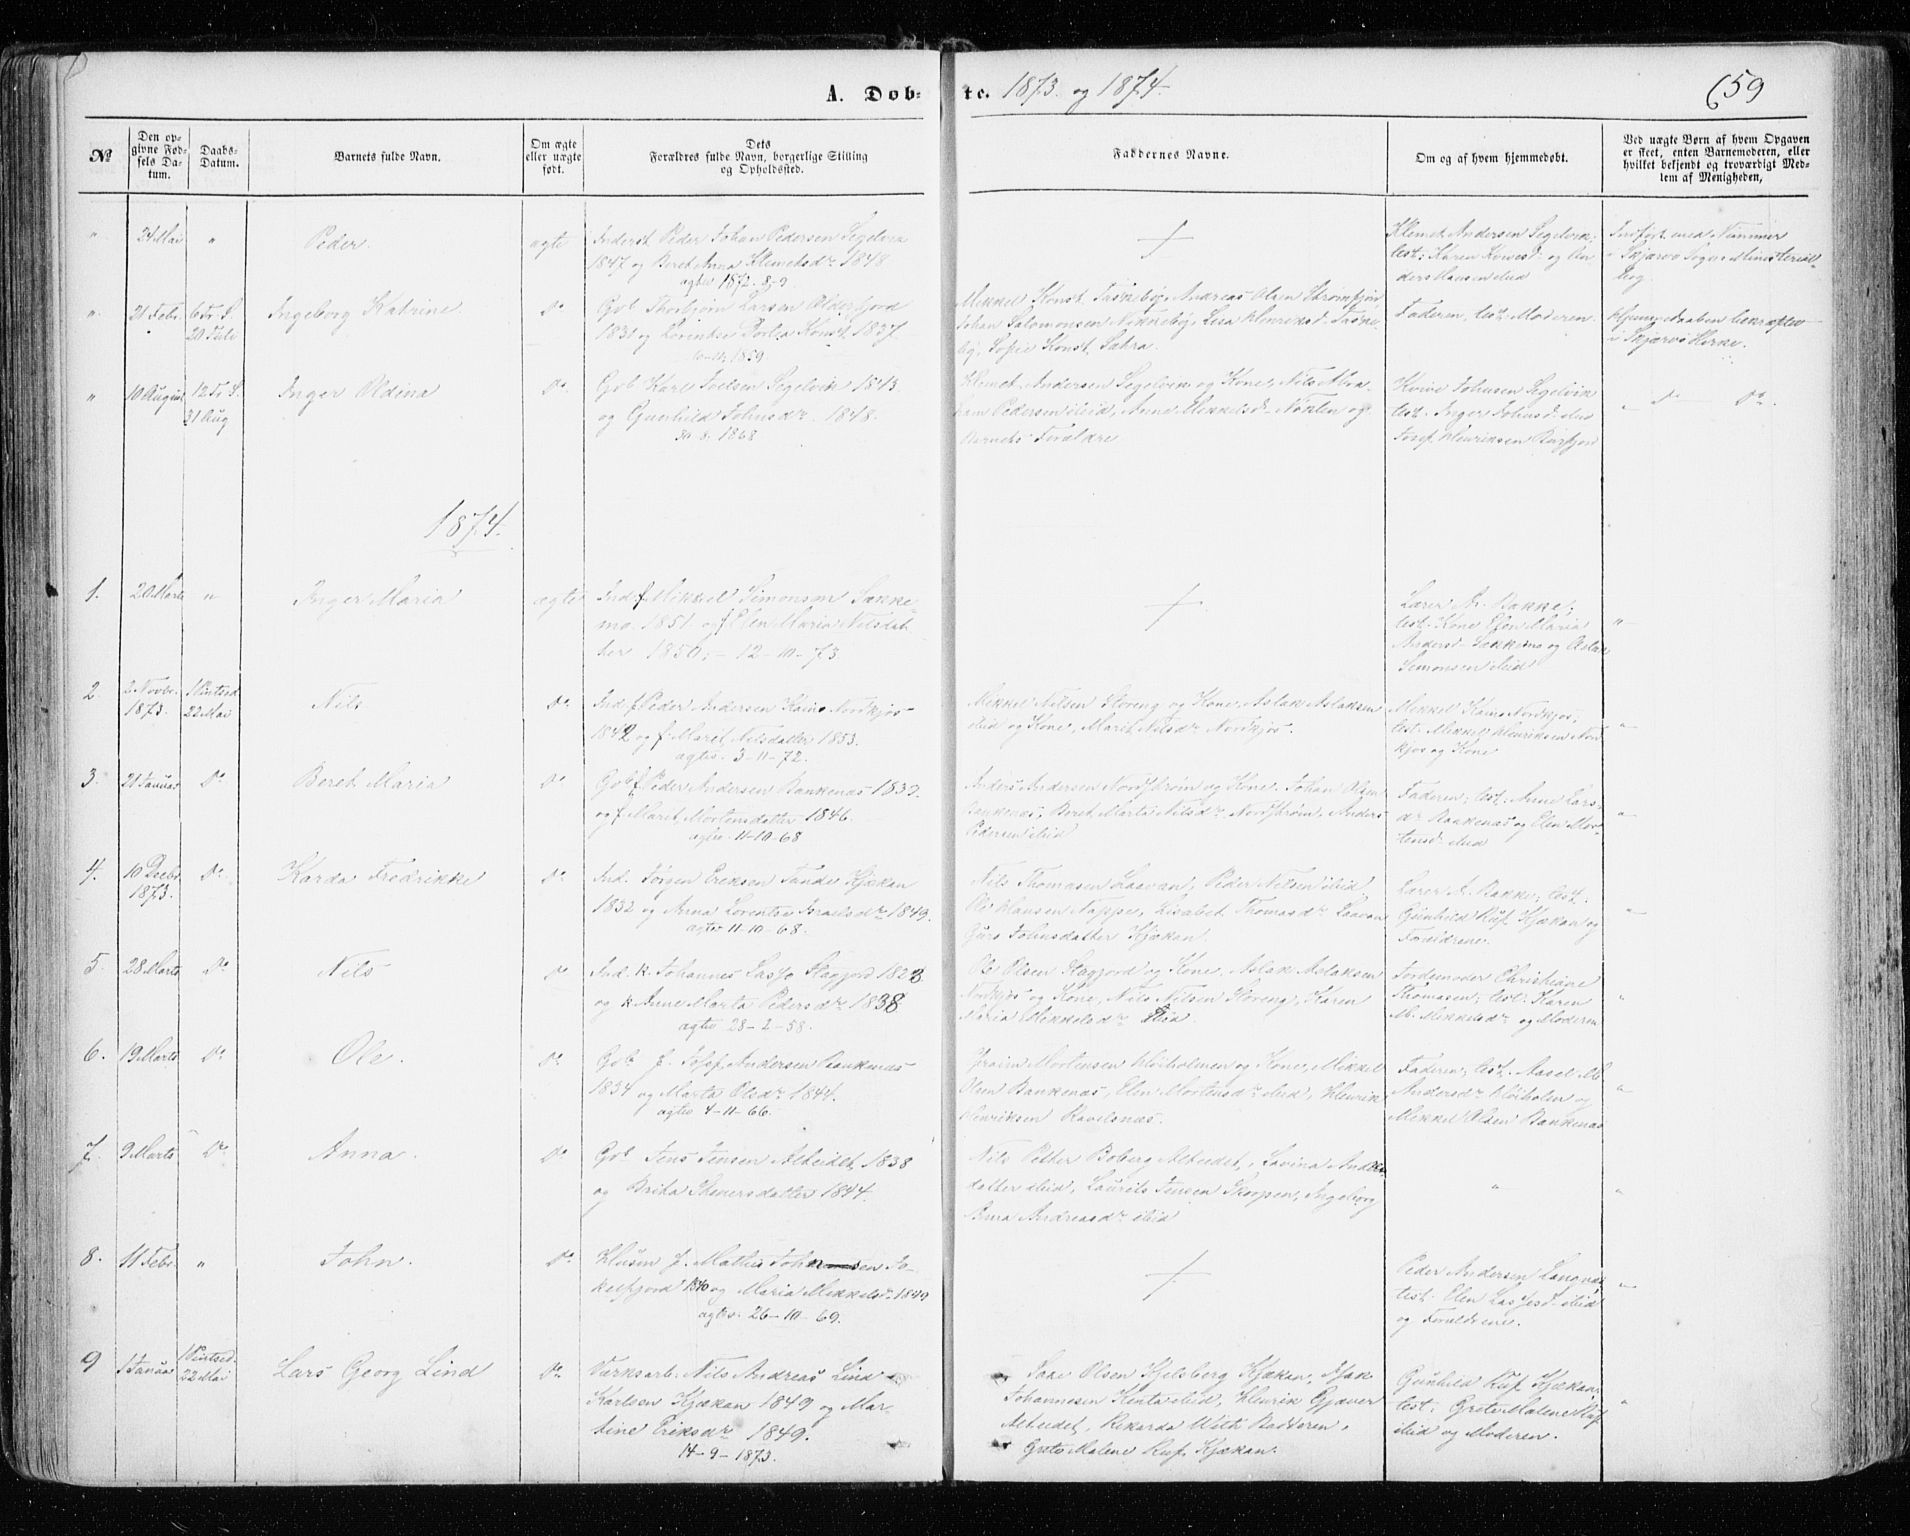 A. Dob- te. 1873 og 1874.
59
№
Den op-
givne Fød-
sels Da-
tum.
Daabs-
Datum.
Barnets fulde Navn.
Om ægte
eller uægte
født.
Dets
Forældres fulde Navn, borgerlige Stilling
og Opholdssted.
Faddernes Navne.
Om og af hvem hjemmedøbt.
Ved uægte Børn af hvem Opgaven
er skeet, enten Barnemoderen, eller
hvilket bekjendt og troværdigt Med-
lem af Menigheden,
" 24 Mai " Peder. ægte
Inderst Peder Johan Pedersen Segelvik
1847 og Beret Anna Klemetsdr 1848
ægtev 1872-8-9
Klemet Andersen Segelvik;
test: Karen og An
ders Hansen ibid
Indført med Nummer
i Skjærvø Sogns Ministerial-
bog.
" 21 Febr. 6 Tr. S.
20 Juli
Ingeborg Katrine. do
Gb Thorbjørn Larsen Olderfjord
1831 og Lorentse Dortea Konst. 1837.
1859
Mikkel Konst. Taskeby, Andreas Olsen Strømfjord,
Johan Salomonsen Nikkeby, Lisa Henriksd. Taske-
by, Sofie Konst.
Faderen, test: Moderen.
Hjemmedaaben bekræftet
i Skjærvø Kirke.
" 10 August 12 Tr. S.
31 Aug
Inger Oldina do
Gb Karl Joelsen Segelvik 1843
og Gunhild Johnsdr. 1848.
30-8-1868
Klemet Andersen Segelvik og Kone, Nils Abra-
ham Pedersen ibid, Anne Mikkelsd. og
Barnets Forældre
Johnsen Segelvik
test. Inger Johnsd. ibid
Josef Henriksen Burfjord
" do do.
1874.
1. 20 Marts " Inger Maria ægte
Ind. f Mikkel Simonsen Sakke-
mo 1851 og f Elen Maria Nilsdat-
ter 1850,- 12-10-73
Lærer A. Bakke;
test. Kone Elen Maria
Andersd Sakkemo og Aslak
Simonsen ibid
"
2. 2 Novbr.
1873.
1 Pintsed
22 Mai
Nils do
Ind. f Peder Andersen Kaino Nordkjos
1842 og f Maret Nilsdatter 1853.
ægtev. 3-11-72.
Mikkel Nilsen Storeng og Kone, Aslak Aslaksen
ibid og Kone, Marit Nilsdr Nordkjos.
Mikkel Kaino Nordkjos;
test. Mikkel Henriksen Nord
kjos og Kone
"
3. 21 Januar do Beret Maria do
Gb f Peder Andersen Bankenæs 1832.
og f Maret Mortensdatter 1846.
ægtev 11-10-68
Anders Andersen Nordstrøm og Kone, Johan Olsen
Bankenæs, Beret Marta Nilsdr Nordstrøm, Anders
Pedersen ibid
Faderen; test: Anne Lars-
dr Bankenæs og Elen Mor-
tensd ibid
"
4. 10 Decbr
1873.
do Karda Fredrikke do
Ind. Jørgen Eriksen Tunde Kjækan
1832 og Anna Lorentse Israelsdr 1849.
ægtev 11-10-68.
Nils Thomasen Laavan, Peder Nilsen ibid
Ole Hansen Nappe, Lisabet Thomasdr Laavan
Guro Johnsdatter Kjækan.
Lærer A. Bakke; test.
Gunhild Ruf Kjækan og
Forældrene.
"
5. 28 Marts do Nils do
Ind. k. Johannes Lasse Hagfjord 1823
og k Anne Marta Pedersdr 1838
ægtev 28-2-58.
Ole Olsen Hagfjord og Kone, Aslak Aslaksen
Nordkjos og Kone, Nils Nilsen Storeng, Karen
Maria Mikkelsdr ibid.
Jordemoder Christiane
Thomasen; test. Karen
M. Mikkelsdr og Moderen
"
6. 19 Marts do Ole. do
Gb f. Josef Andersen Bankenæs
1834 og Marta Olsdr 1844.
ægtev 4-11-66.
Mortensen Høiholmen og Kone, Mikkel
Olsen Bankenæs, Elen Mortensdr ibid, Henrik
Henriksen Ravelsnæs.
Faderen; test. Aasel M.
Andersdr Høiholm og
Mikkel Olsen Bankenæs
"
7. 9 Marts do Anna. do
Gb Jens Jensen Alteidet 1838
og Brita 1844.
Nils Petter Boberg Alteidet, Lovina Anders
datter ibid, Laurits Jensen Skorpen, Ingeborg
Anna Andreasdr ibid
"
"
8. 11 Febr. " John. do
Husm f. Mathis Johnsen Jo-
kelfjord 1840 og Maria Mikkelsd 1849
ægtev. 26-10-69.
Peder Andersen Langnæs,
test. Elen Lassesd ibid
og Forældrene.
"
9 1 Januar 1 Pintsed.
22 Mai
Lars Georg Lind do
Værksarb. Nils Andreas Lind
Karlsen Kjækan 1849 og Mar-
tine Eriksdr 1849.
14-9-1873.
Olsen Hjelsberg Kjækan, Isak
Johannesen Kenta ibid, Henrik Gjæver
Alteidet, Rikarda With Badderen,
Grete Malene Ruf Kjækan.
Gunhild Ruf Kjækan,
test. Grete Malene Ruf
ibid og Moderen.
"